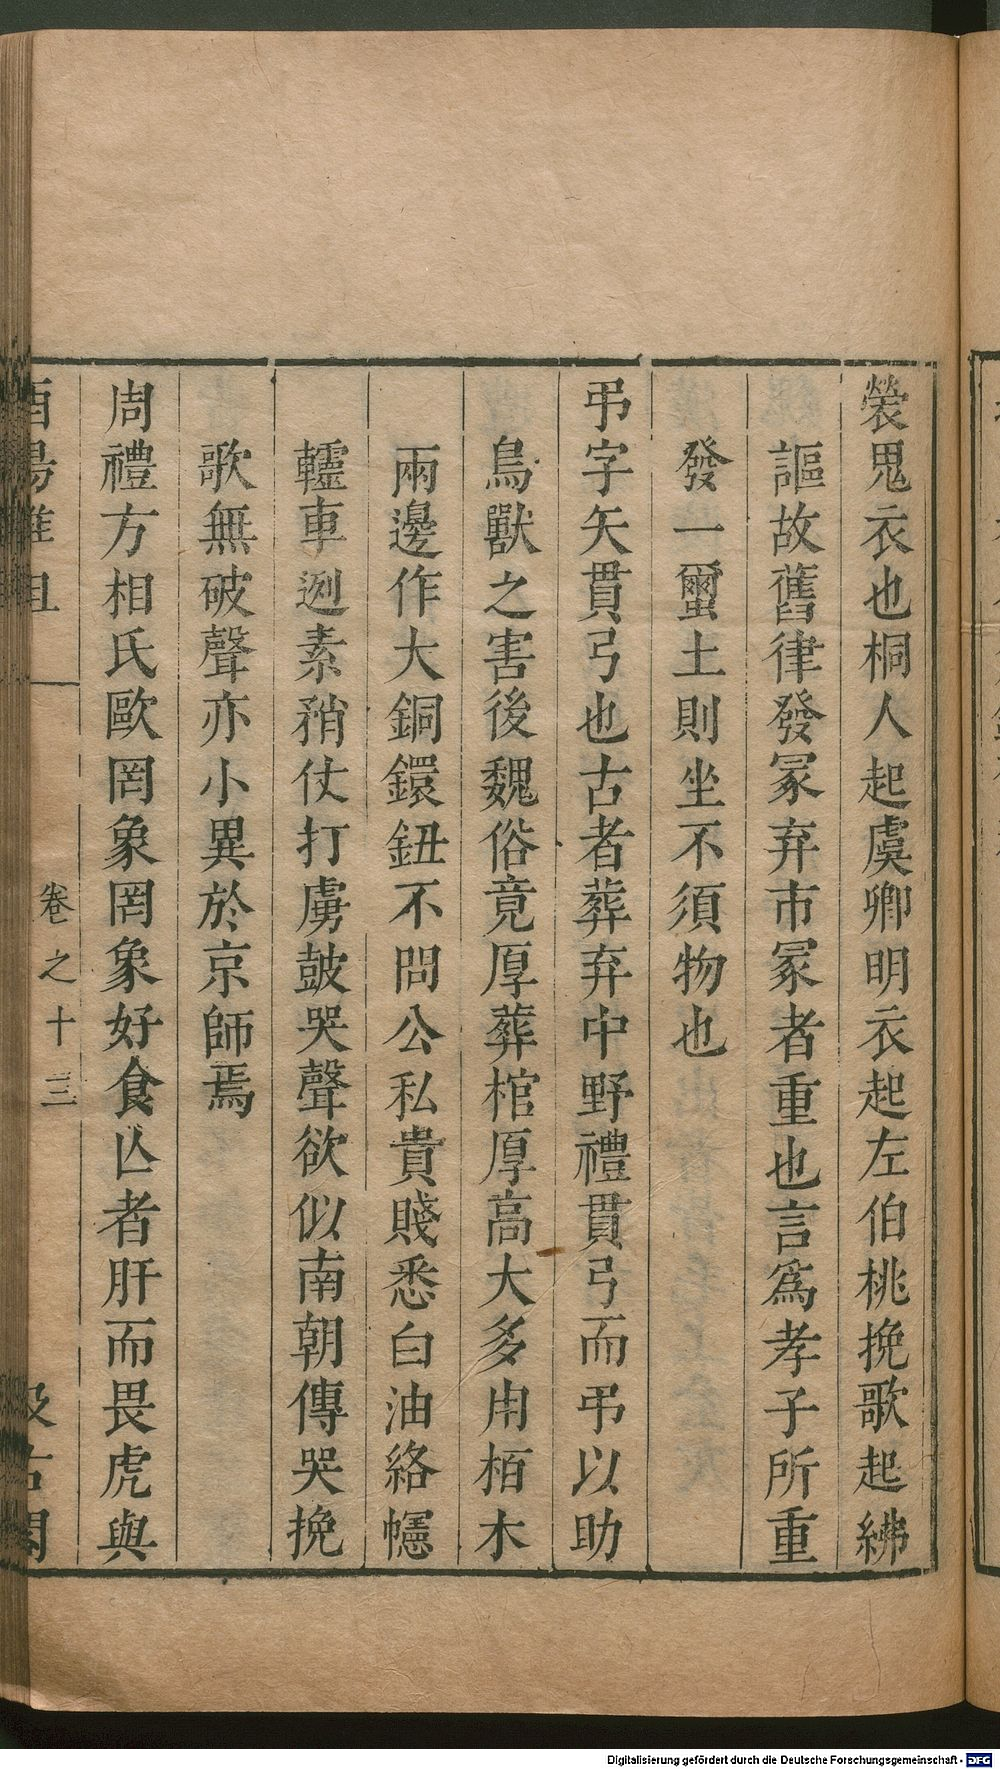 褮鬼衣也桐人起虞卿明衣起左伯桃挽歌起紼
謳故舊律發冢弃市冢者重也言爲孝子所重
發一璽土則坐不須物也
弔字矢貫弓也古者葬弃中野禮貫弓而弔以助
鳥獸之害後魏俗竟厚葬棺厚高大多用栢木
兩邊作大銅鐶鈕不問公私貴賤悉白油絡幰
轜車迾素矟仗打虜鼓哭聲欲似南朝傳哭挽
歌無破聲亦小異於京師焉
周禮方相氏歐罔象罔象好食亾者肝而畏虎與
酉陽雜俎 卷之十三 汲古閣
Digitalisierung gefördert durch die Deutsche Forschungsgemeinschaft - DFG